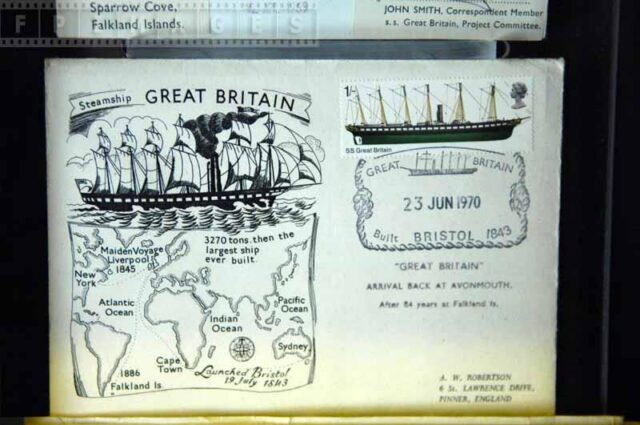 Sparrow Cove,
Falkland Islands.
69
JOHN SMITH, Correspondent Member
s.s. Great Britain, Project Committee.
Steamship GREAT BRITAIN
1/-
SS Great Britain
GREAT BRITAIN
23 JUN 1970
Built BRISTOL 1843
"GREAT BRITAIN"
ARRIVAL BACK AT AVONMOUTH.
After 84 years at Falkland Is.
3270 tons. then the
largest ship
ever built.
Maiden Voyage
Liverpool
1845
New
York
Atlantic
Ocean
Indian
Ocean
Pacific
Ocean
Sydney
Cape
Town
1886
Falkland Is.
Launched Bristol
19 July 1843
A. W. ROBERTSON
6 St. LAWRENCE DRIVE,
PINNER, ENGLAND